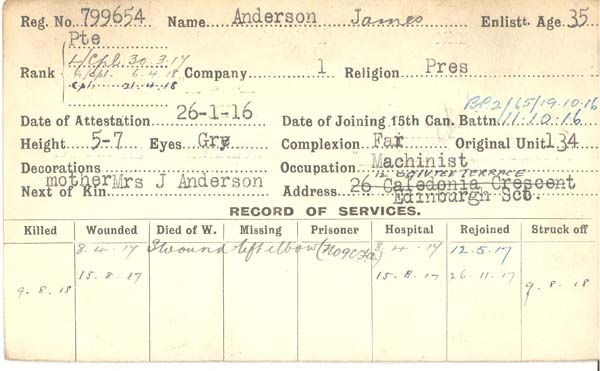 Reg. No. 799654 Name Anderson James Enlistt. Age 35
Pte
L/Cpl. 30.3.17
Rank A/Cpl. 6.4.18 Company 1 Religion Pres
Cpl. 21.4.18
B.P.2/65/19.10.16
Date of Attestation 26-1-16 Date of Joining 15th Can. Battn. 11.10.16
Height 5-7 Eyes Gry Complexion Fair Original Unit 134
Decorations Occupation Machinist
12 TERRACE
Next of Kin mother Mrs J Anderson Address 26 Caledonia Crescent
Edinburgh Sct.
RECORD OF SERVICES.
Killed Wounded Died of W. Missing Prisoner Hospital Rejoined Struck off
8.4.17 S wound left elbow (No 9 C Fa) 8.4.17 12.5.17
15.8.17 15.8.17 26.11.17
9.8.18 9.8.18